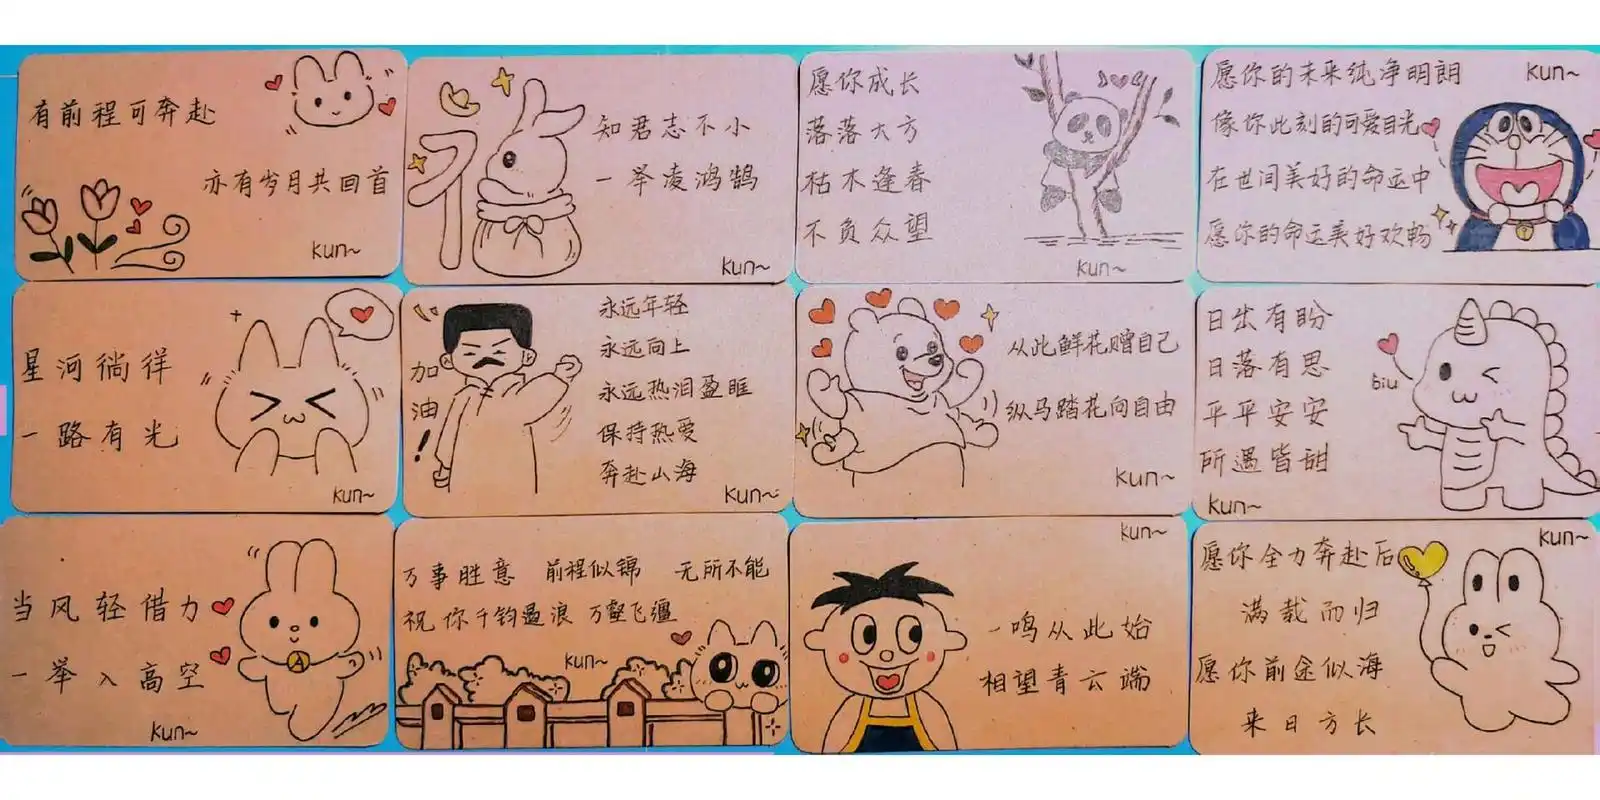 有前程可奔赴
亦有岁月共回首
kun~
知君志不小
一举凌鸿鹄
kun~
愿你成长
落落大方
枯木逢春
不负众望
kun~
愿你的未来纯净明朗
kun~
像你此刻的可爱目光
在世间美好的命运中
愿你的命运美好欢畅
星河徜徉
一路有光
kun~
加油!
永远年轻
永远向上
永远热泪盈眶
保持热爱
奔赴山海
kun~
从此鲜花赠自己
纵马踏花向自由
kun~
日出有盼
日落有思
平平安安
所遇皆甜
biu
kun~
当风轻借力
一举入高空
kun~
万事胜意 前程似锦 无所不能
祝你千钧遏浪 万壑飞疆
kun~
kun~
一鸣从此始
相望青云端
kun~
愿你全力奔赴后
满载而归
愿你前途似海
来日方长